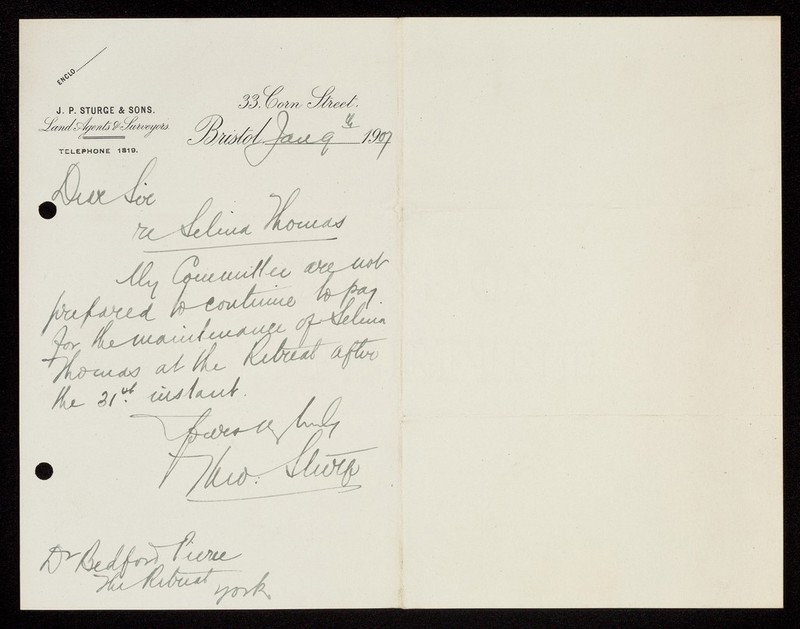 ENCLO
J. P. STURGE & SONS.
Land Agents & Surveyors.
TELEPHONE 1819.
33, Corn Street.
Bristol Jan 9th 1907
Dear Sir
re Selina Thomas
My Committee are not
prepared to continue to pay
for the maintenance of Selina
Thomas at the Retreat after
the 31st instant.
Yours very truly
Theo. Sturge
Dr Bedford Pierce
The Retreat
York